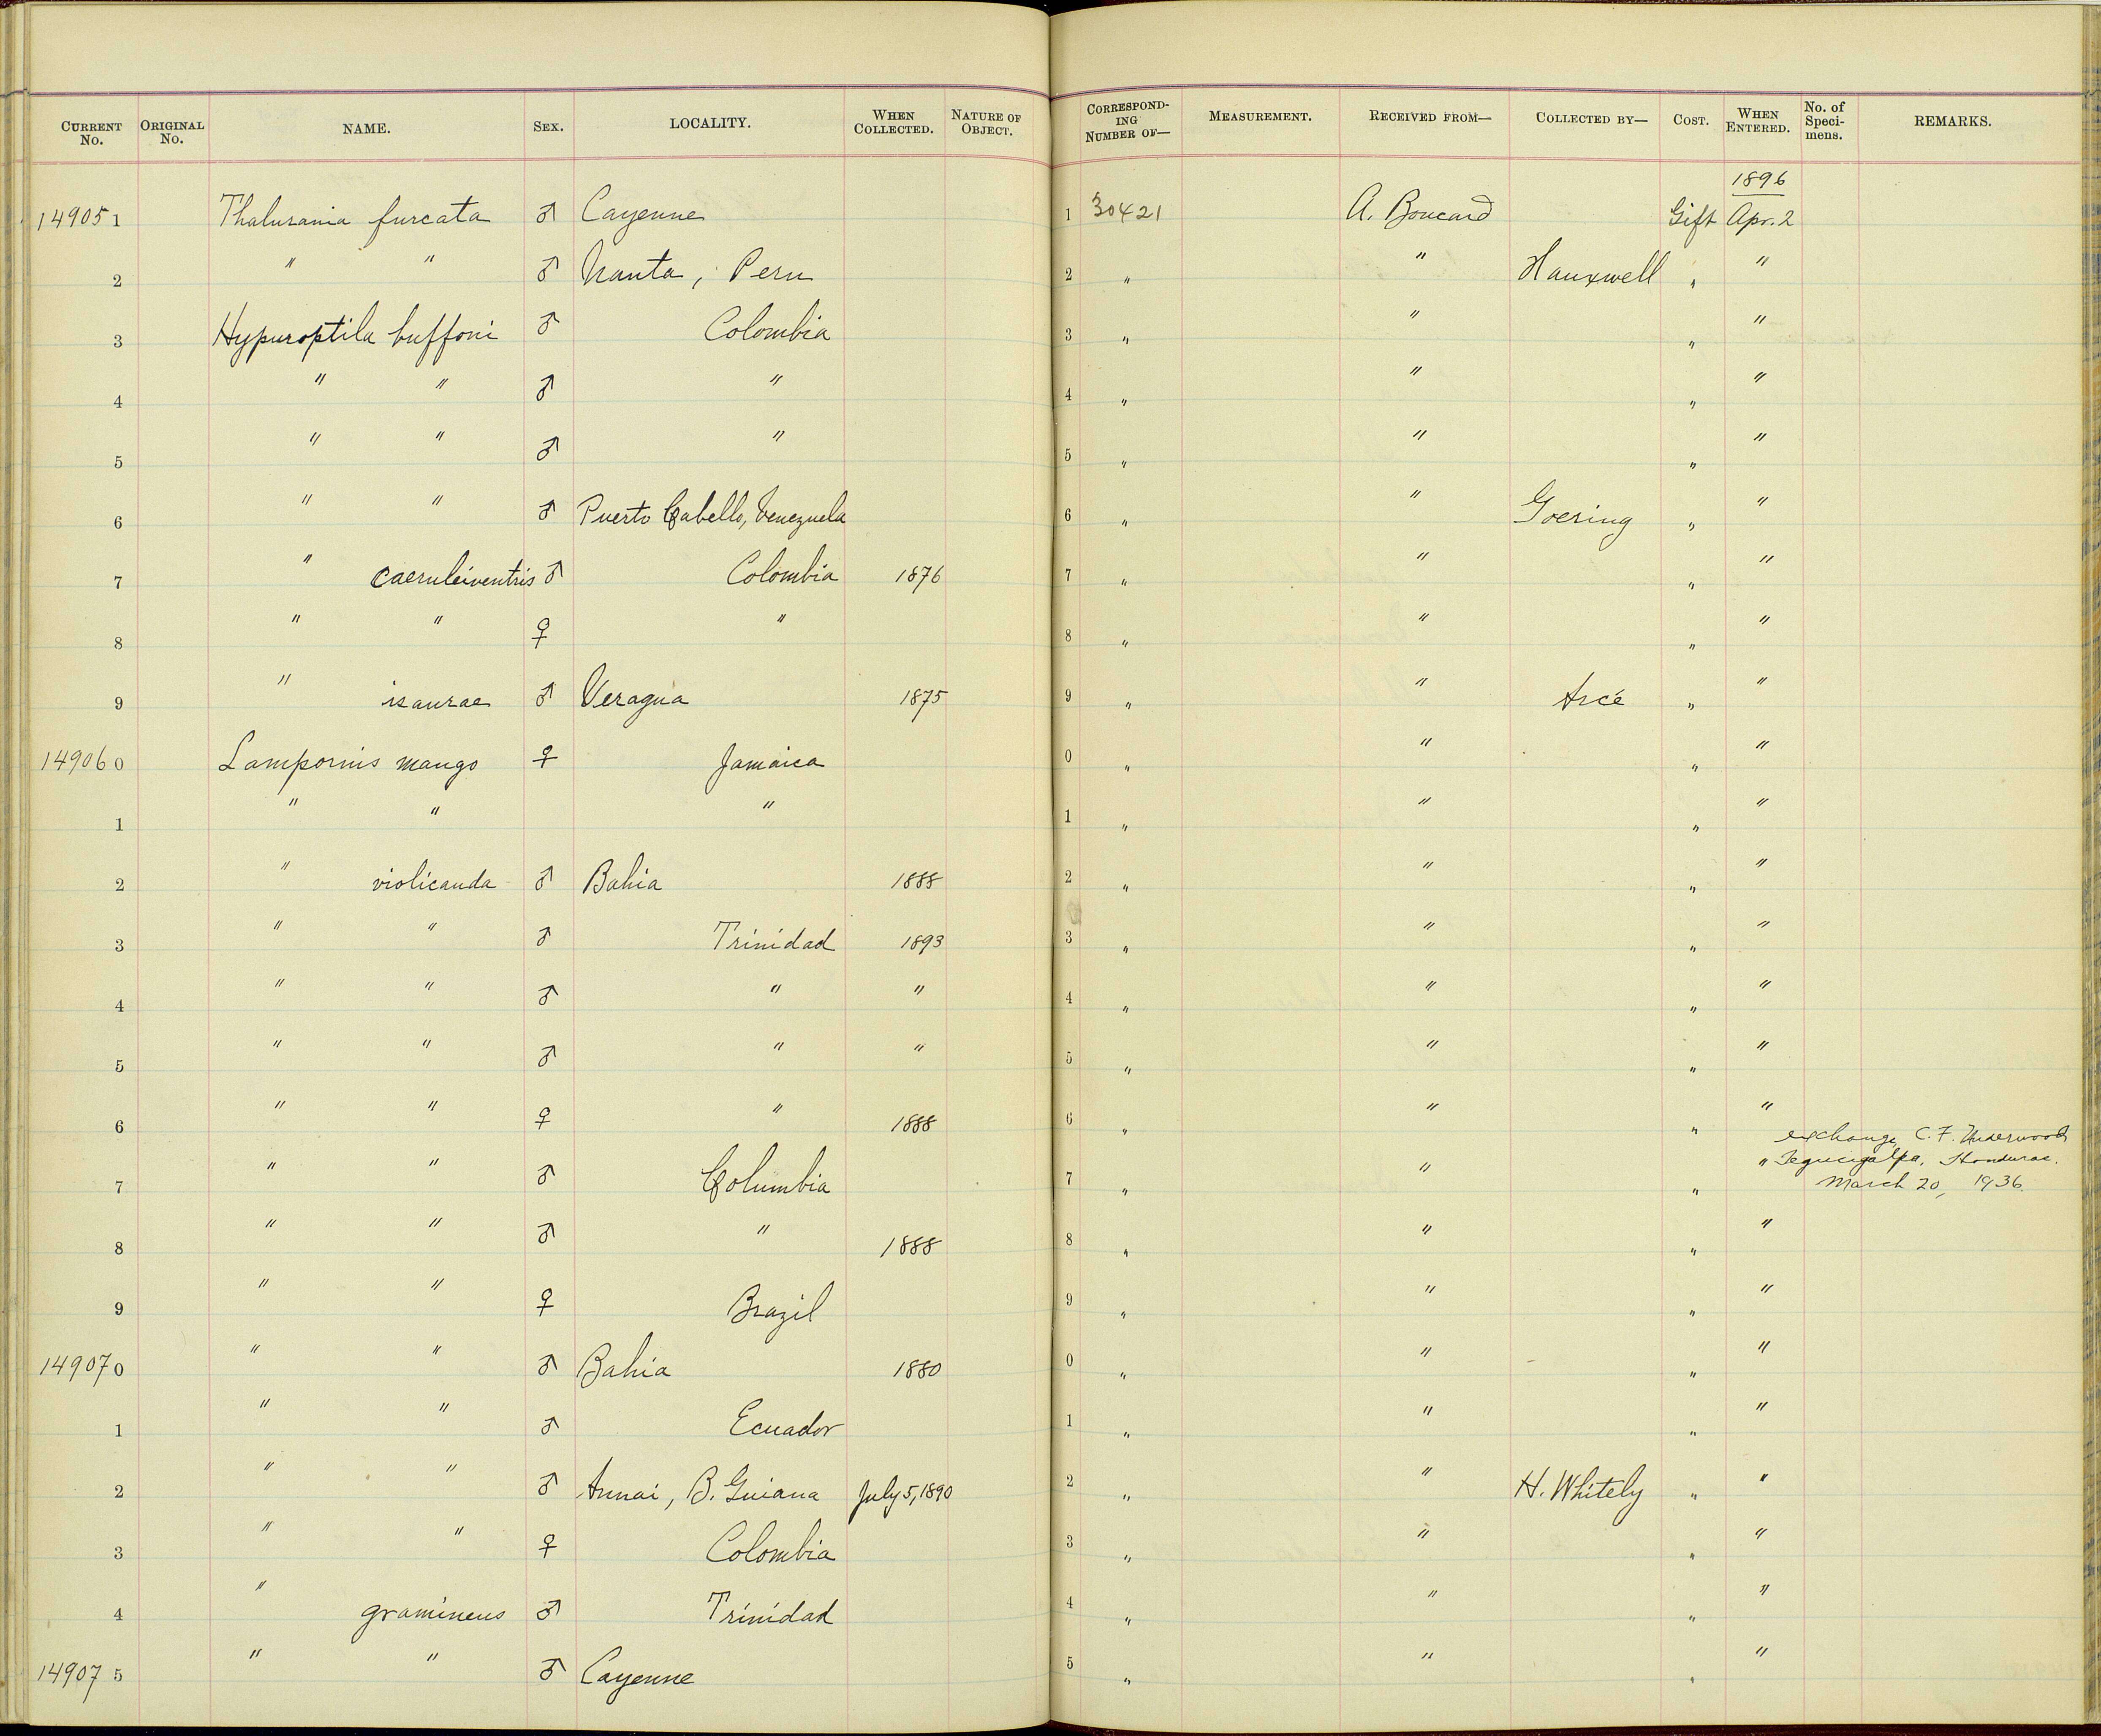 CURRENT No. ORIGINAL No. NAME. SEX. LOCALITY. WHEN COLLECTED. NATURE OF OBJECT. CORRESPOND-ING NUMBER OF— MEASUREMENT. RECEIVED FROM— COLLECTED BY— COST. WHEN ENTERED. No. of Speci-mens. REMARKS.
1896
149051 Thalurania furcata ♂ Cayenne 1 30421 A. Boucard Gift Apr. 2
2 " " ♂ Nauta, Peru 2 " " Hauxwell " "
3 Hypuroptila buffoni ♂ Colombia 3 " " " "
4 " " ♂ " 4 " " " "
5 " " ♂ " 5 " " " "
6 " " ♂ Puerto Cabello, Venezuela 6 " " Goering " "
7 " caeruleiventris ♂ Colombia 1876 7 " " " "
8 " " ♀ " 8 " " " "
9 " isaurae ♂ Veragua 1875 9 " " Arcé " "
149060 Lampornis mango ♀ Jamaica 0 " " " "
1 " " " 1 " " " "
2 " violicauda ♂ Bahia 1888 2 " " " "
3 " " ♂ Trinidad 1893 3 " " " "
4 " " ♂ " " 4 " " " "
5 " " ♂ " " 5 " " " "
6 " " ♀ " 1888 6 " " " "
exchange C. F. Underwood
7 " " ♂ Columbia 7 " " " " Tegucigalpa, Honduras.
March 20, 1936.
8 " " ♂ " 1888 8 " " " "
9 " " ♀ Brazil 9 " " " "
149070 " " ♂ Bahia 1880 0 " " " "
1 " " ♂ Ecuador 1 " " " "
2 " " ♂ Annai, B. Guiana July 5, 1890 2 " " H. Whitely " "
3 " " ♀ Colombia 3 " " " "
4 " gramineus ♂ Trinidad 4 " " " "
149075 " " ♂ Cayenne 5 " " " "